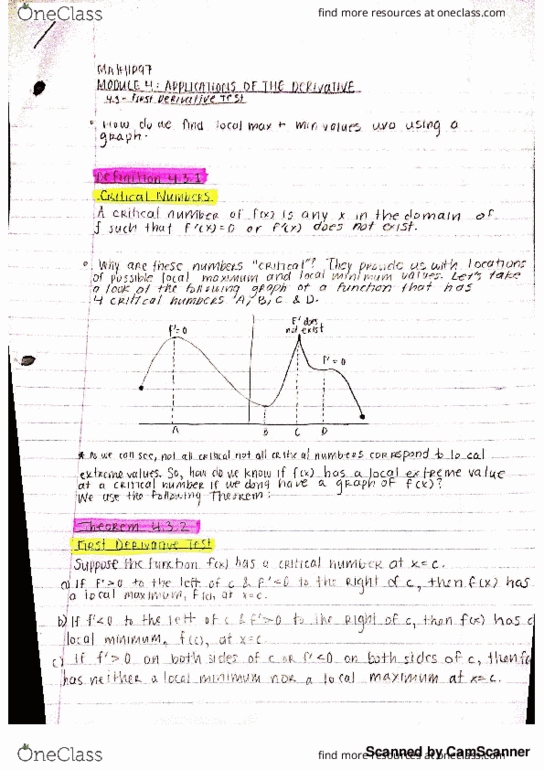 OneClass
find more resources at oneclass.com
MATH1P97
MODULE 4: APPLICATIONS OF THE DERIVATIVE
4.3 - First Derivative Test
• How do we find local max + min values w/o using a
graph.
Definition 4.3.1
Critical Numbers
A critical number of f(x) is any x in the domain of
f such that f'(x)=0 or f'(x) does not exist.
• Why are these numbers "critical"? They provide us with locations
of possible local maximum and local minimum values. Let's take
a look at the following graph of a function that has
4 critical numbers A, B, C & D.
f'=0
f' does
not exist
f'=0
A
B
C
D
* As we can see, not all critical not all critical numbers correspond to local
extreme values. So, how do we know if f(x) has a local extreme value
at a critical number if we dong have a graph of f(x)?
We use the following Theorem:
Theorem 4.3.2
First Derivative Test
Suppose the function f(x) has a critical number at x=c.
a) If f'>0 to the left of c & f'<0 to the right of c, then f(x) has
a local maximum, f(c), at x=c.
b) If f'<0 to the left of c & f'>0 to the right of c, then f(x) has
local minimum, f(c), at x=c.
c) If f'>0 on both sides of c or f'<0 on both sides of c, then
has neither a local minimum nor a local maximum at x=c.
OneClass
find more resources at oneclass.com
Scanned by CamScanner